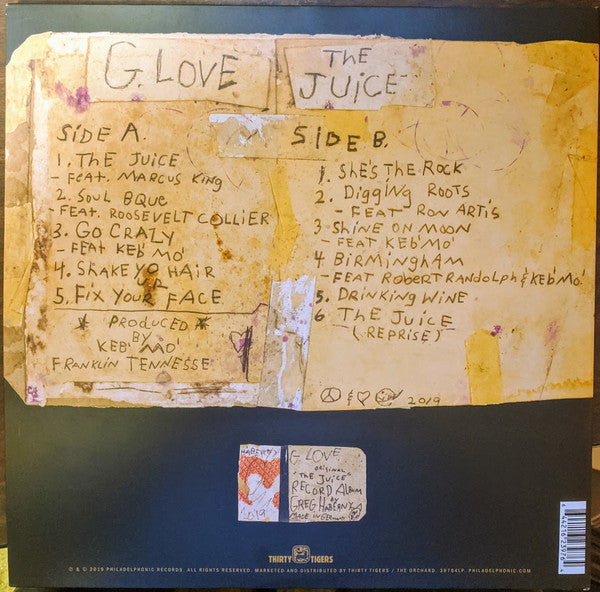 G. LOVE
THE JUICE
SIDE A.
1. THE JUICE
- FEAT. MARCUS KING
2. SOUL BQUE
- FEAT. ROOSEVELT COLLIER
3. GO CRAZY
- FEAT KEB' MO'
4. SHAKE YO HAIR
5. FIX YOUR FACE
* PRODUCED *
BY
KEB' MO'
FRANKLIN TENNESSE
SIDE B.
1. SHE'S THE ROCK
2. DIGGING ROOTS
- FEAT RON ARTIS
3 SHINE ON MOON
- FEAT KEB' MO'
4 BIRMINGHAM
- FEAT ROBERT RANDOLPH & KEB' MO'
5. DRINKING WINE
6 THE JUICE
(REPRISE)
2019
G. LOVE
ORIGINAL
"THE JUICE"
RECORD ALBUM
BY
GREG HABERNY
MADE IN GERMANY
THIRTY TIGERS
℗ & © 2019 PHILADELPHONIC RECORDS. ALL RIGHTS RESERVED. MARKETED AND DISTRIBUTED BY THIRTY TIGERS / THE ORCHARD. 39764LP. PHILADELPHONIC.COM